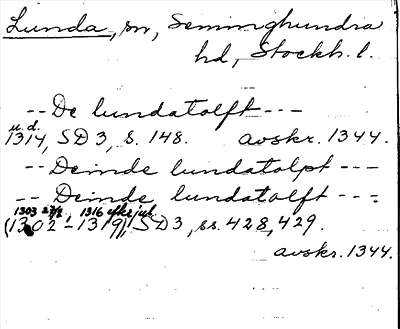 Lunda, sn, Seminghundra
hd, Stockh. l.
-- De lundatolft ---
u.d.
1314, SD 3, s. 148. avskr. 1344.
-- Deinde lundatolpt ---
-- Deinde lundatolft ---
1303 27/2, 1316 efter jul
(1302-1319), SD 3, ss. 428, 429.
avskr. 1344.